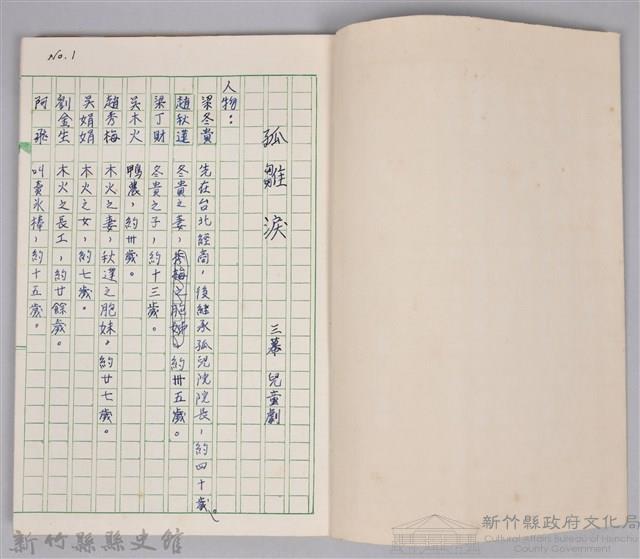 No.1
孤雛淚　三幕兒童劇
人物：
梁冬貴　先在台北經商，後繼承孤兒院院長，約四十歲。
趙秋蓮　冬貴之妻，秀梅之胞姊，約卅五歲。
梁丁財　冬貴之子，約十三歲。
吳木火　鴨農，約卅歲。
趙秀梅　木火之妻，秋蓮之胞妹，約廿七歲。
吳娟娟　木火之女，約七歲。
劉金生　木火之長工，約廿餘歲。
阿飛　叫賣冰棒，約十五歲。
新竹縣縣史館
新竹縣政府文化局
Cultural Affairs Bureau of Hsinchu County Government